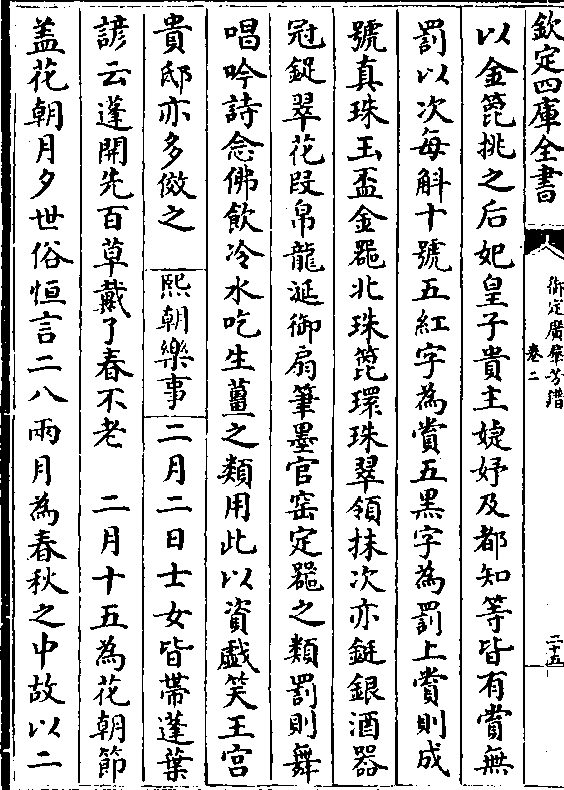 欽定四庫全書
御定廣羣芳譜
卷二
二十五
以金箆挑之后妃皇子貴主婕妤及都知等皆有賞無
罰以次每斛十號五紅字為賞五黑字為罰上賞則成
號真珠玉盃金器北珠箆環珠翠領抹次亦鋌銀酒器
冠鋜翠花段帛龍涎御扇筆墨官窑定器之類罰則舞
唱吟詩念佛飲冷水吃生薑之類用此以資戲笑王宫
貴邸亦多傚之 熙朝樂事 二月二日士女皆帶蓬葉
諺云蓬開先百草戴了春不老 二月十五為花朝節
盖花朝月夕世俗恒言二八兩月為春秋之中故以二